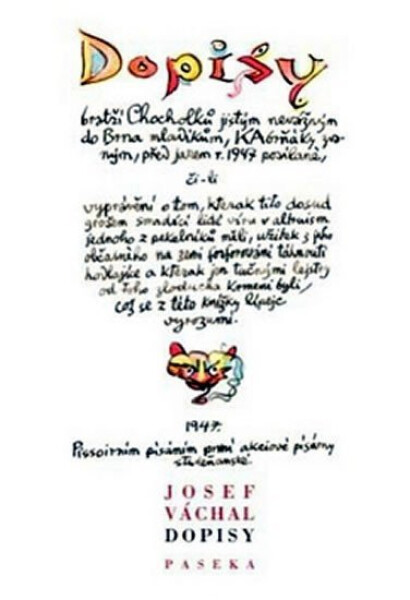 Dopisy
bratří Chocholků jistým nevážným
do Brna mladíkům, KAbrňáky zva-
ným, před jarem r. 1947 posílané,
či-li
vyprávění o tom, kterak tito dosud
grošem smradící lidé víru v altruism
jednoho z pekelníků měli, užitek z jeho
občasného na zemi
a kterak jen tučnými lejstry
od toho zloducha krmeni byli,
což se z této knížky lépeje
vyrozumí.
1947.
Pissoirním písáním první akciové písárny
studeňanské.
JOSEF
VÁCHAL
DOPISY
PASEKA